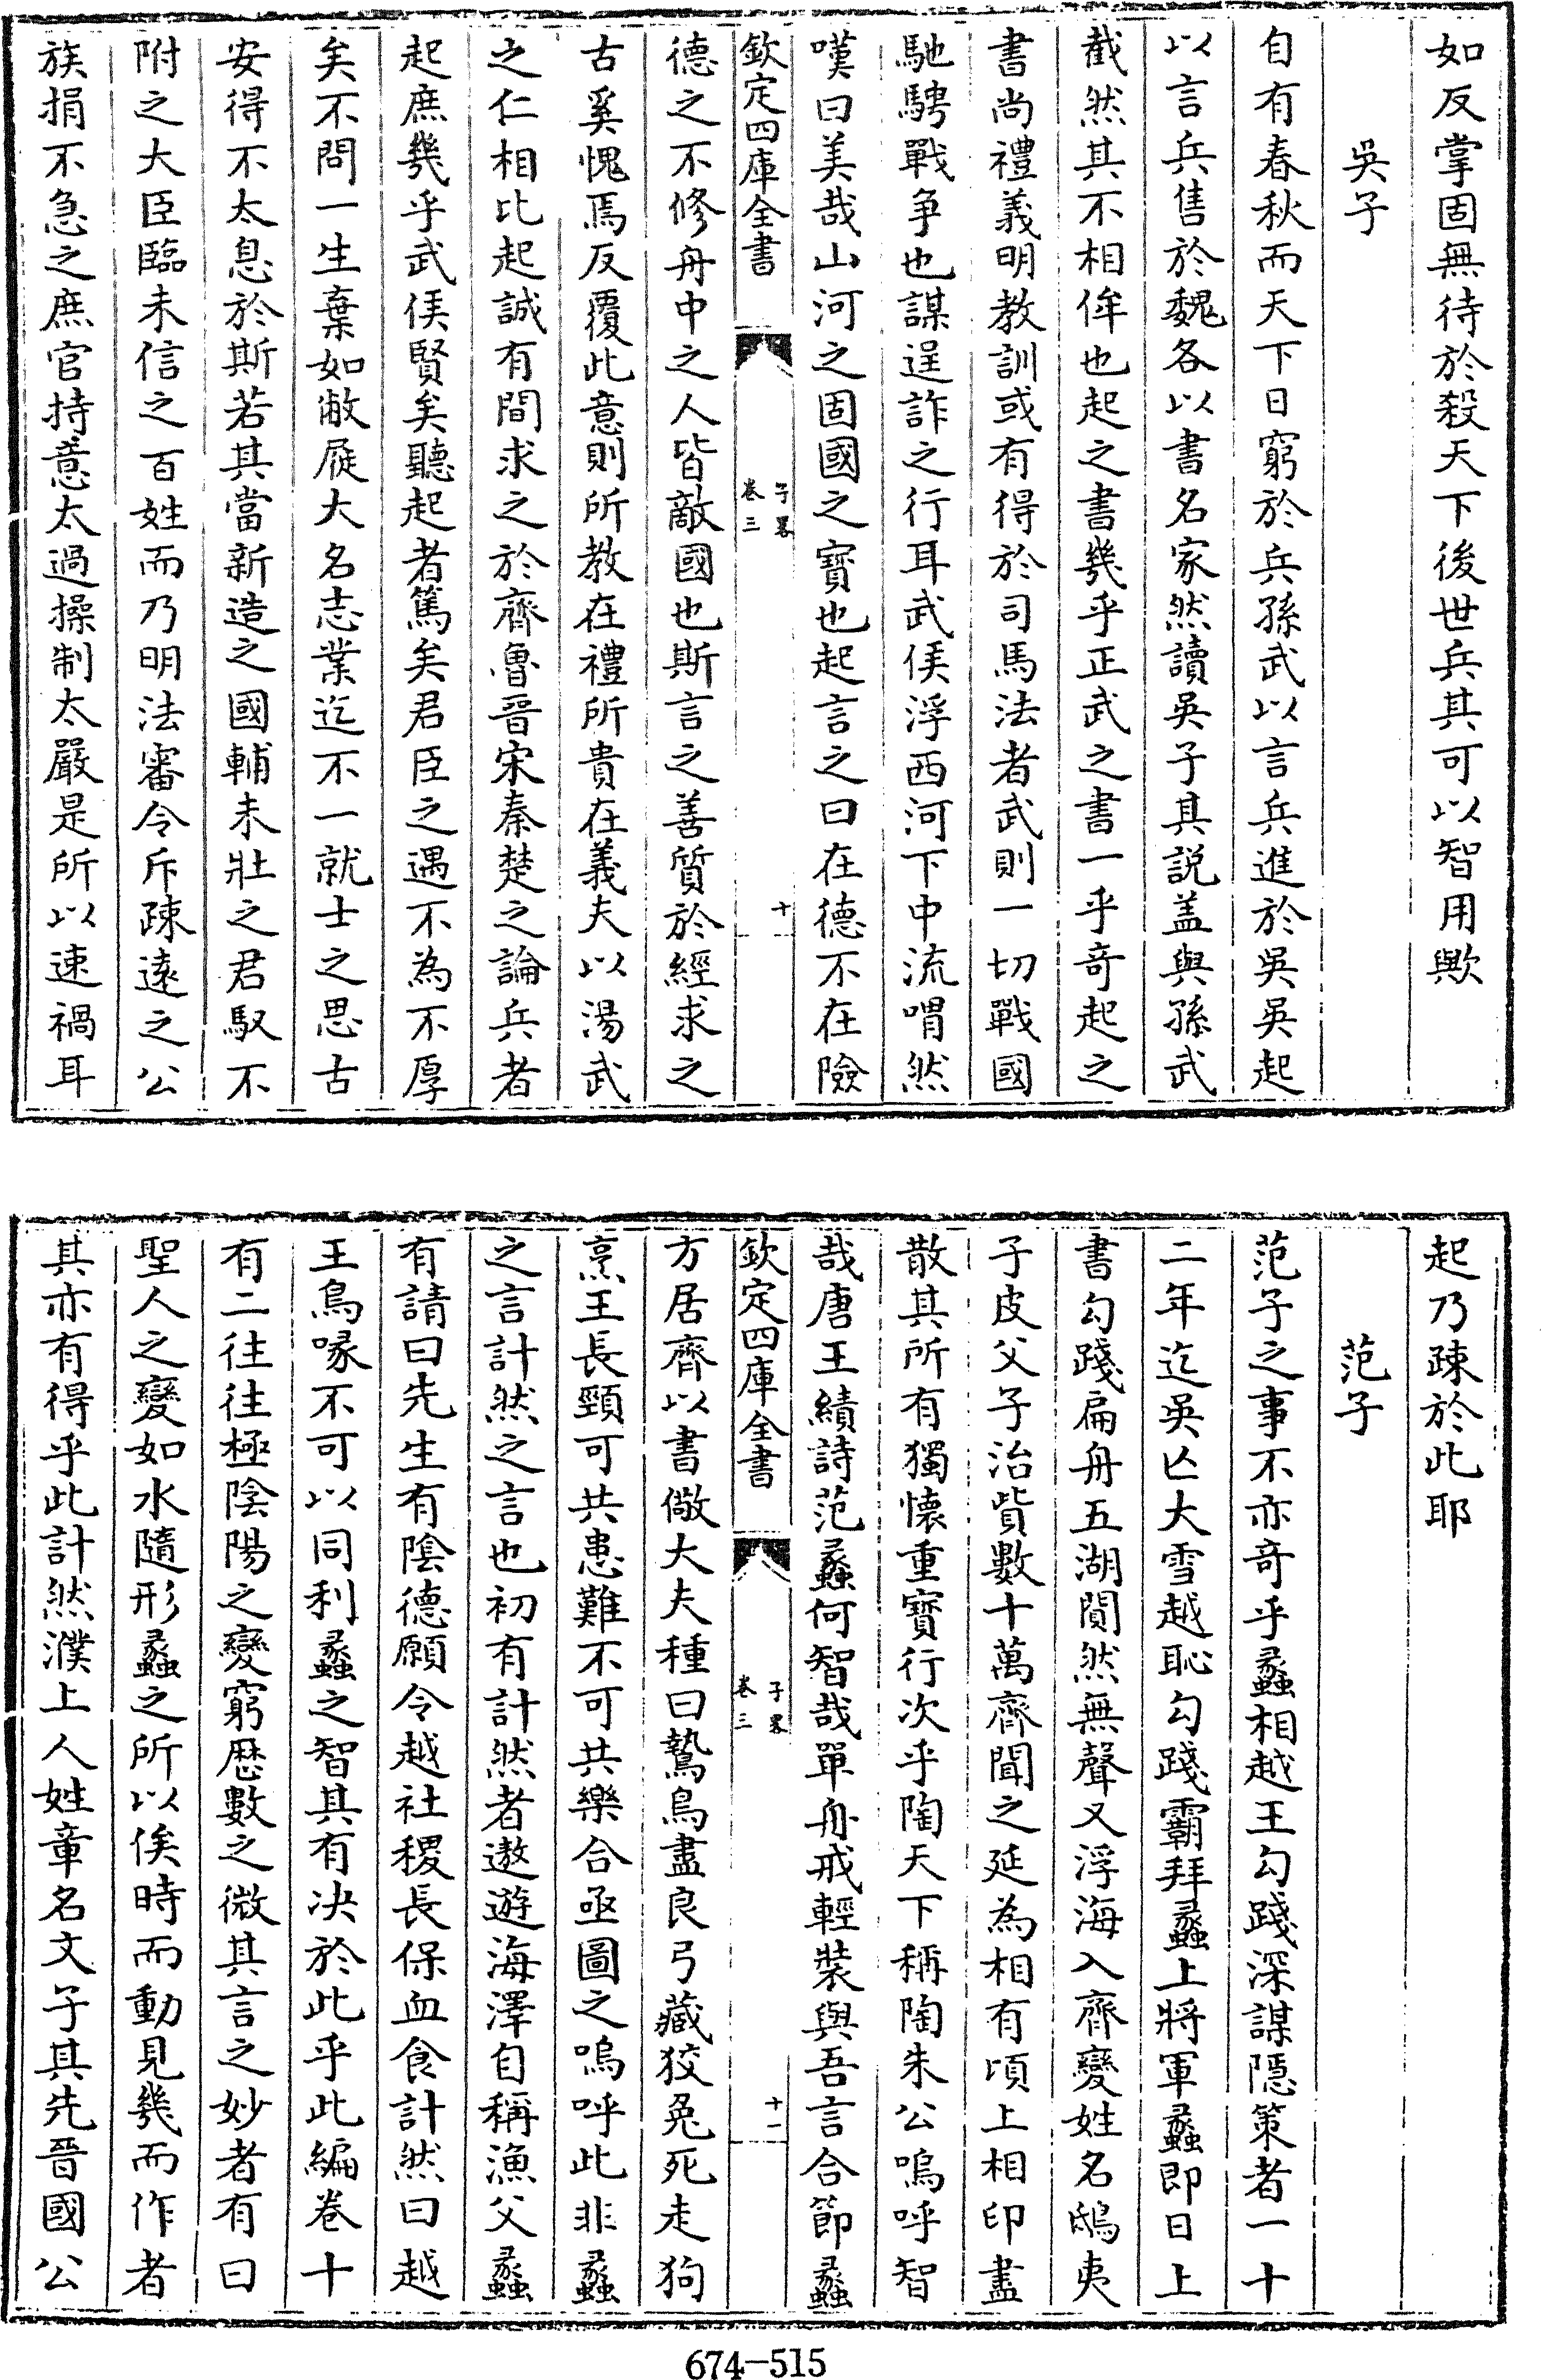 如反掌固無待於殺天下後世兵其可以智用歟
吳子
自有春秋而天下日窮於兵孫武以言兵進於吳吳起
以言兵售於魏各以書名家然讀吳子其説盖與孫武
截然其不相侔也起之書幾乎正武之書一乎奇起之
書尚禮義明教訓或有得於司馬法者武則一切戰國
馳騁戰争也謀逞詐之行耳武侯浮西河下中流喟然
嘆曰美哉山河之固國之寳也起言之曰在德不在險
欽定四庫全書
子畧
卷三
十
德之不修舟中之人皆敵國也斯言之善質於經求之
古奚愧焉反覆此意則所教在禮所貴在義夫以湯武
之仁相比起誠有間求之於齊魯晉宋秦楚之論兵者
起庶幾乎武侯賢矣聽起者篤矣君臣之遇不為不厚
矣不問一生棄如敝屣大名志業迄不一就士之思古
安得不太息於斯若其當新造之國輔未壯之君馭不
附之大臣臨未信之百姓而乃明法審令斥疎遠之公
族捐不急之庶官持意太過操制太嚴是所以速禍耳
起乃疎於此耶
范子
范子之事不亦奇乎蠡相越王勾踐深謀隱策者一十
二年迄吳亾大雪越恥勾踐霸拜蠡上將軍蠡即日上
書勾踐扁舟五湖閴然無聲又浮海入齊變姓名鴟夷
子皮父子治貲數十萬齊聞之延為相有頃上相印盡
散其所有獨懷重寳行次乎陶天下稱陶朱公嗚呼智
哉唐王績詩范蠡何智哉單舟戒輕裝與吾言合節蠡
欽定四庫全書
子畧
卷三
十一
方居齊以書儆大夫種曰鷙鳥盡良弓藏狡兔死走狗
烹王長頸可共患難不可共樂合亟圖之嗚呼此非蠡
之言計然之言也初有計然者遨遊海澤自稱漁父蠡
有請曰先生有陰德願令越社稷長保血食計然曰越
王鳥喙不可以同利蠡之智其有决於此乎此編卷十
有二往往極陰陽之變窮歴數之微其言之妙者有曰
聖人之變如水隨形蠡之所以俟時而動見幾而作者
其亦有得乎此計然濮上人姓章名文子其先晉國公
674-515